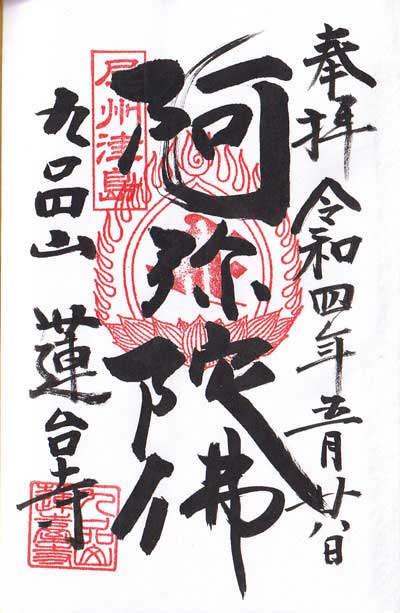 奉拝 令和四年五月廿八日
阿弥陀佛
尾州津島
九品山 蓮台寺
九品山
蓮臺寺